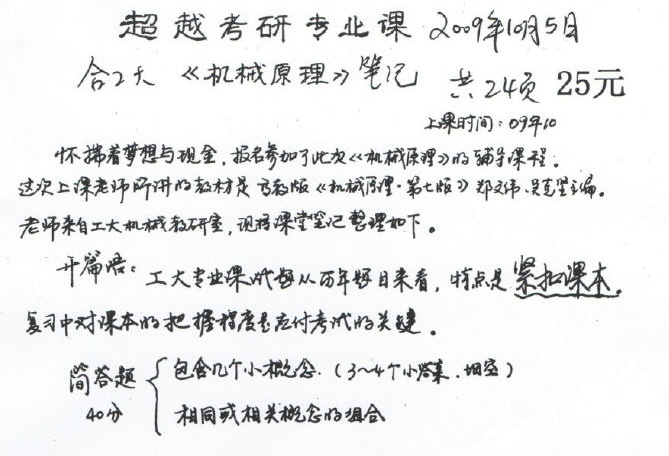 超越考研专业课 2009年10月5日
合工大《机械原理》笔记 共24页 25元
上课时间：09年10
怀揣着梦想与现金，报名参加了此次《机械原理》的辅导课程。
这次上课老师所讲的教材是高教版《机械原理·第七版》郑文纬、吴克坚主编。
老师来自工大机械教研室，现将课堂笔记整理如下。
开篇语：工大专业课试题从历年题目来看，特点是紧扣课本。
复习中对课本的把握程度是应付考试的关键。
简答题 包含几个小概念．（3～4个小答案、填空）
40分 相同或相关概念的组合